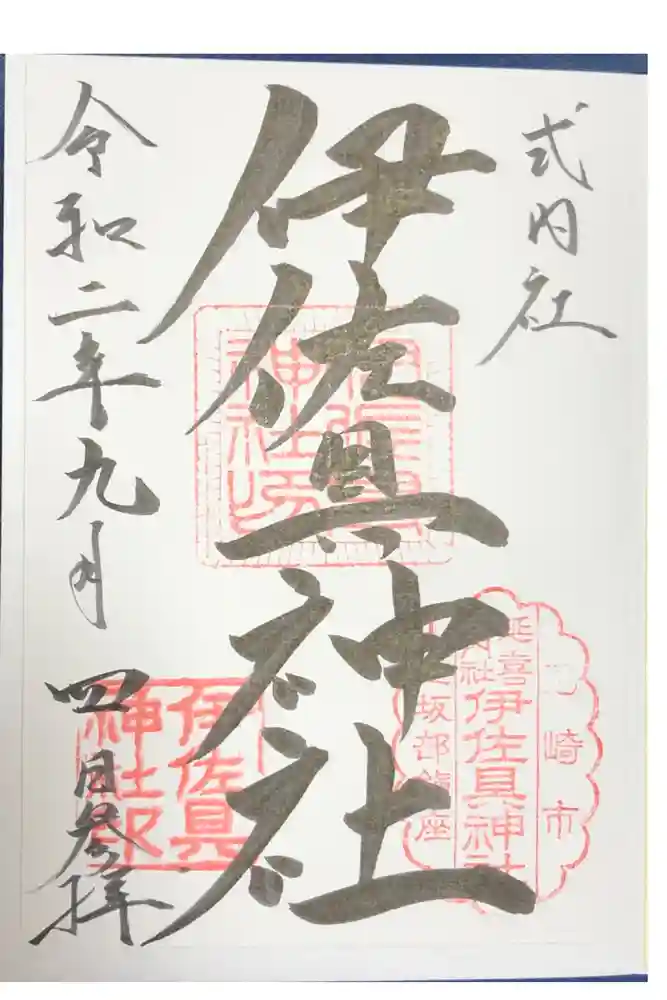 式内社
伊佐具神社
令和二年九月四日参拝
崎市
延喜
内社
伊佐具神社
坂部
座
伊佐具
神社印